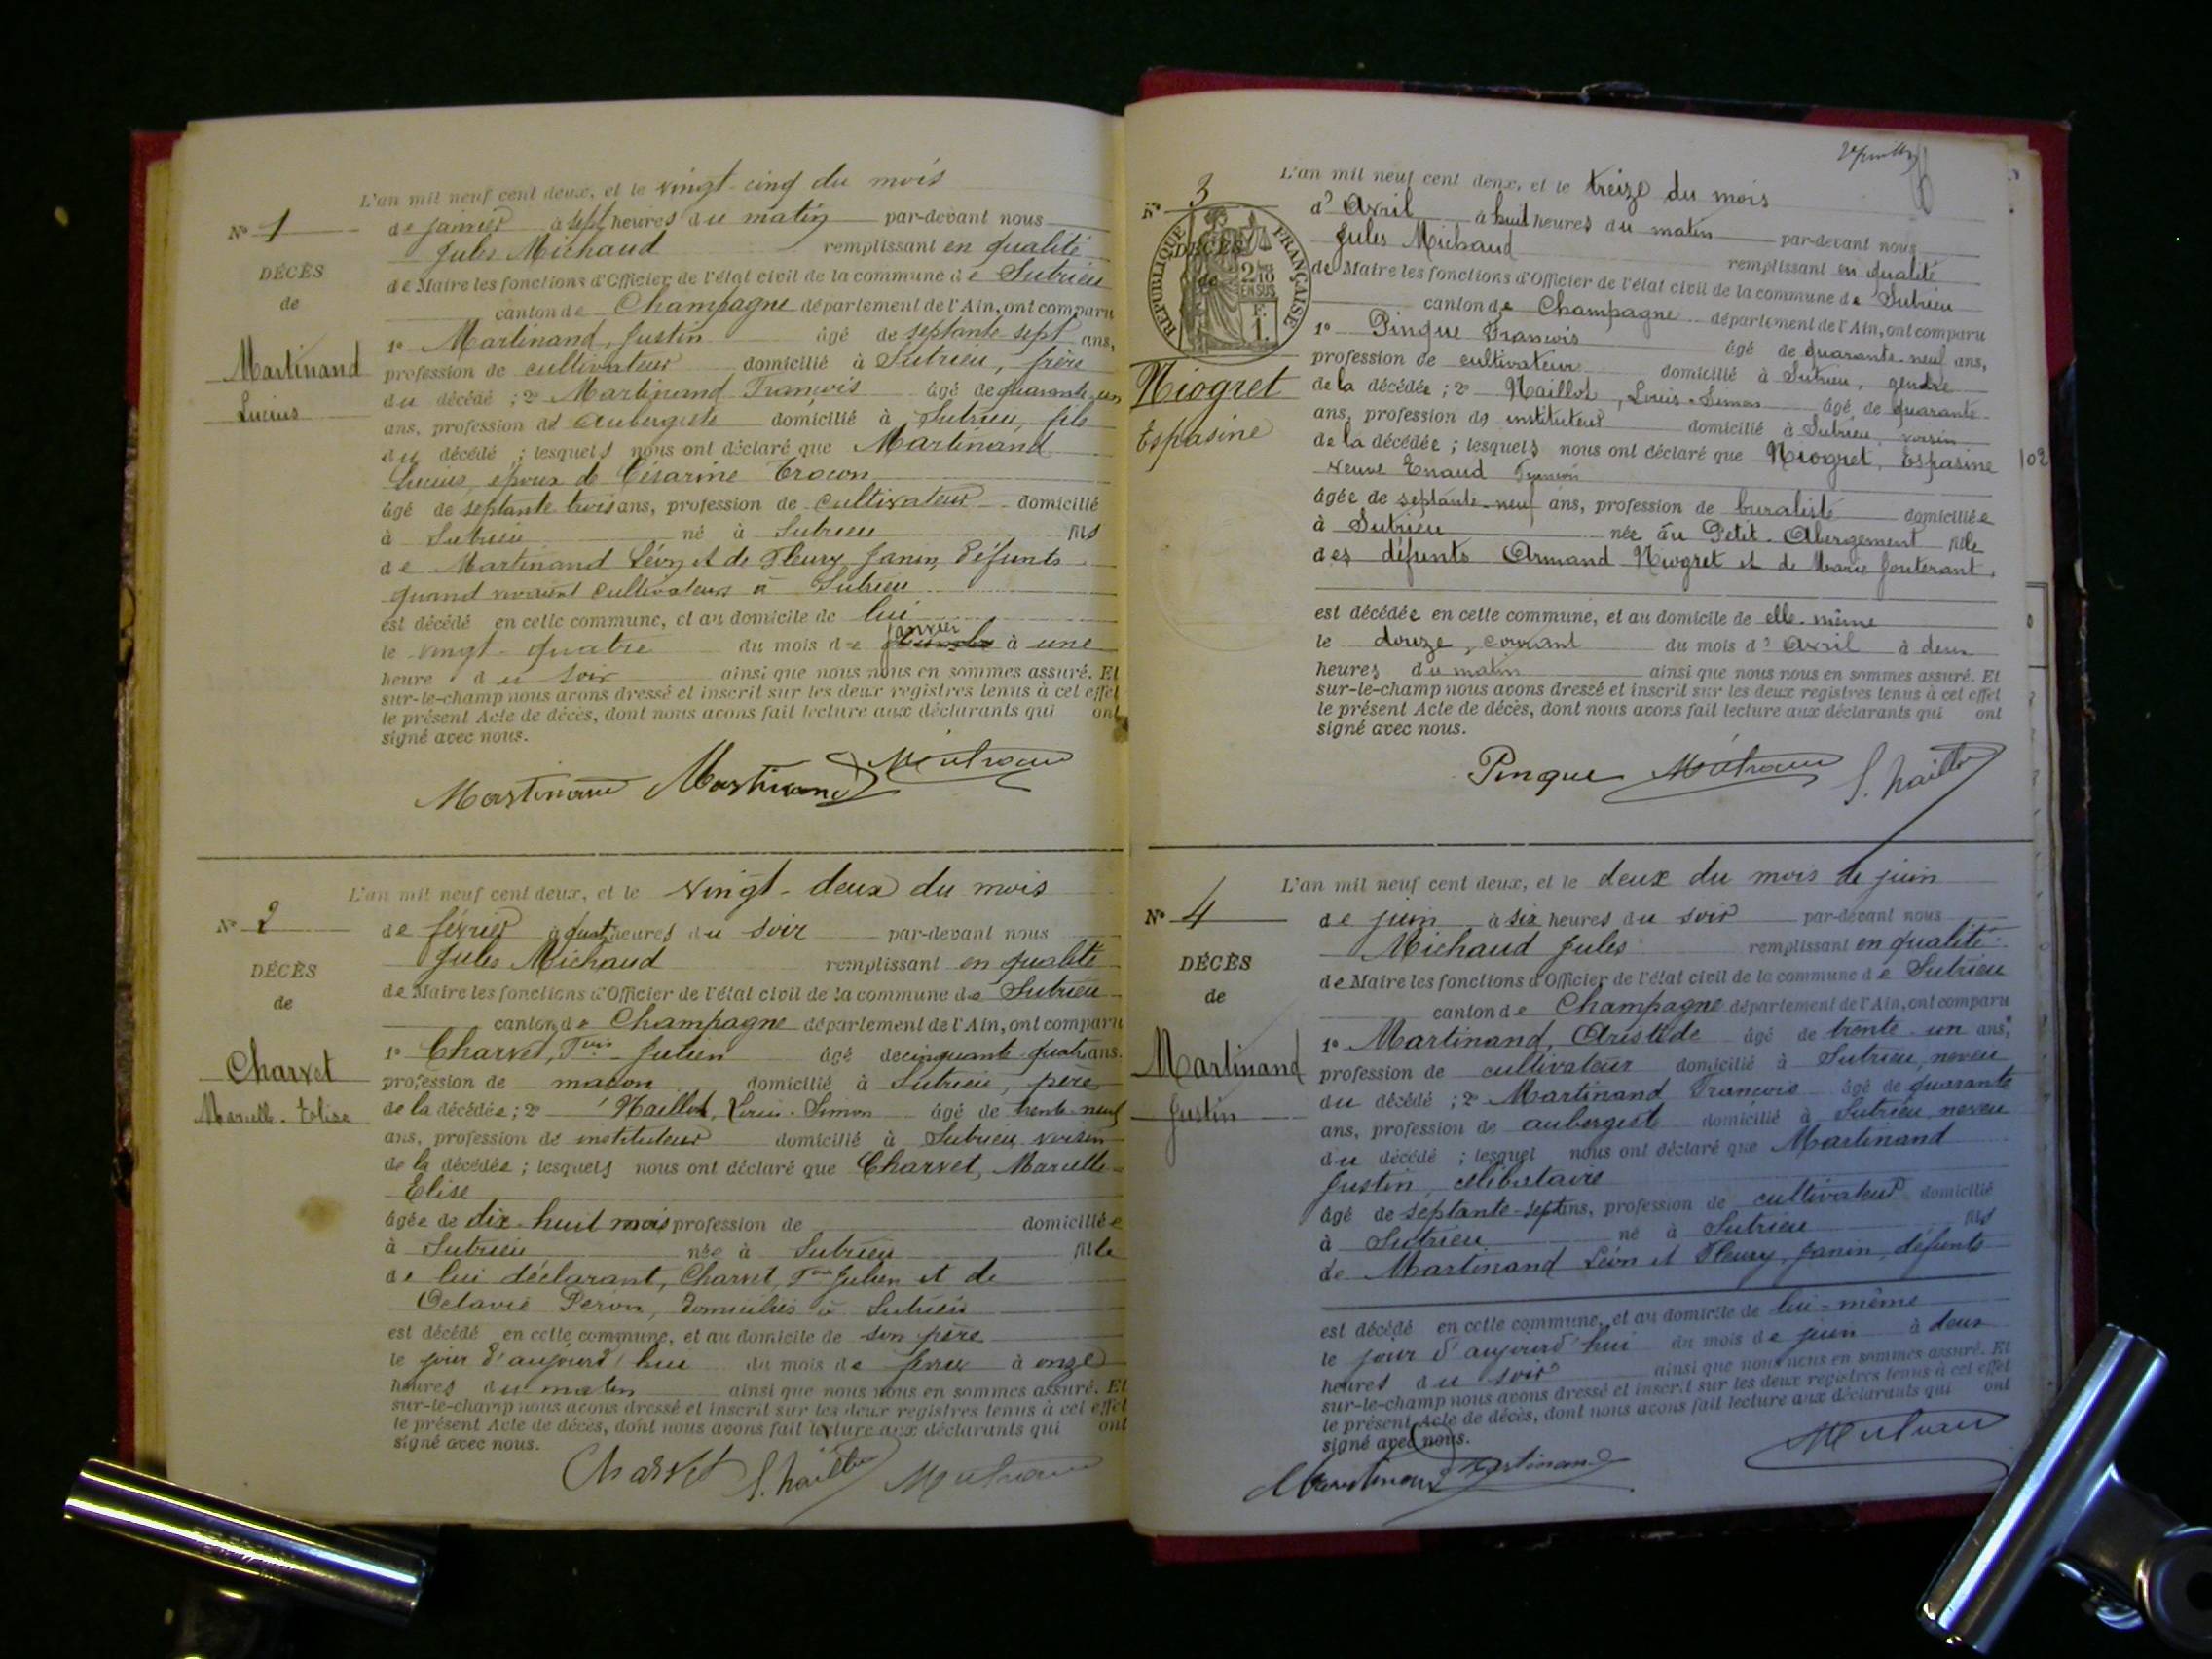 L'an mil neuf cent deux, et le vingt-cinq du mois
N° 1
de janvier à sept heures du matin par-devant nous
Jules Michaud remplissant en qualité
DÉCÈS
de Maire les fonctions d'Officier de l'état civil de la commune de Sutrieu
de
canton de Champagne département de l'Ain, ont comparu
1° Martinand, Justin âgé de septante-sept ans,
Martinand
profession de cultivateur domicilié à Sutrieu, frère
Lucius
du décédé ; 2° Martinand François âgé de quarante un
ans, profession d' aubergiste domicilié à Sutrieu, fils
du décédé ; lesquels nous ont déclaré que Martinand
Lucius, époux de Césarine Trocon
âgé de septante trois ans, profession de cultivateur domicilié
à Sutrieu né à Sutrieu fils
de Martinand Léon et de Fleury Janin, défunts
quand vivaient cultivateurs à Sutrieu
est décédé en cette commune, et au domicile de lui
janvier
le vingt-quatre du mois de à une
heure du soir ainsi que nous nous en sommes assuré. Et
sur-le-champ nous avons dressé et inscrit sur les deux registres tenus à cet effet
le présent Acte de décès, dont nous avons fait lecture aux déclarants qui ont
signé avec nous.
Martinand Martinand
L'an mil neuf cent deux, et le vingt-deux du mois
N° 2
de février à quatre heures du soir par-devant nous
Jules Michaud remplissant en qualité
DÉCÈS
de Maire les fonctions d'Officier de l'état civil de la commune de Sutrieu
de
canton de Champagne département de l'Ain, ont comparu
1° Charvet, Fois Julien âgé de cinquante-quatre ans.
Charvet
profession de maçon domicilié à Sutrieu, père
Marcelle-Elise
de la décédée ; 2° Naillod, Louis-Simon âgé de trente-neuf
ans, profession de instituteur domicilié à Sutrieu voisin
de la décédée ; lesquels nous ont déclaré que Charvet, Marcelle-
Elise
âgée de dix-huit mois profession de domiciliée
à Sutrieu née à Sutrieu fille
de lui déclarant, Charvet, Fois Julien et de
Octavie Peron, domiciliés à Sutrieu
est décédé en cette commune, et au domicile de son père
le jour d'aujourd'hui du mois de février à onze
heures du matin ainsi que nous nous en sommes assuré. Et
sur-le-champ nous avons dressé et inscrit sur les deux registres tenus à cet effet
le présent Acte de décès, dont nous avons fait lecture aux déclarants qui ont
signé avec nous.
Charvet
L'an mil neuf cent deux, et le treize du mois
N° 3
d' Avril à huit heures du matin par-devant nous
RÉPUBLIQUE FRANÇAISE
2/10 EN SUS
F. 1.
Jules Michaud remplissant en qualité
DÉCÈS
de Maire les fonctions d'Officier de l'état civil de la commune de Sutrieu
de
canton de Champagne département de l'Ain, ont comparu
1° Pinque François âgé de quarante-neuf ans,
Niogret
profession de cultivateur domicilié à Sutrieu, gendre
Espasine
de la décédée ; 2° Naillod, Louis-Simon âgé de quarante-
ans, profession de instituteur domicilié à Sutrieu, voisin
de la décédée ; lesquels nous ont déclaré que Niogret, Espasine
102
veuve Enaud François
âgée de septante-neuf ans, profession de buraliste domiciliée
à Sutrieu née au Petit-Abergement fille
des défunts Armand Niogret et de Marie Jouterant.
est décédée en cette commune, et au domicile de elle-même
le douze, courant du mois d' Avril à deux
heures du matin ainsi que nous nous en sommes assuré. Et
sur-le-champ nous avons dressé et inscrit sur les deux registres tenus à cet effet
le présent Acte de décès, dont nous avons fait lecture aux déclarants qui ont
signé avec nous.
Pinque
L'an mil neuf cent deux, et le deux du mois de juin
N° 4
de juin à six heures du soir par-devant nous
Michaud Jules remplissant en qualité
DÉCÈS
de Maire les fonctions d'Officier de l'état civil de la commune de Sutrieu
de
canton de Champagne département de l'Ain, ont comparu
1° Martinand, Aristide âgé de trente-un ans,
Martinand
profession de cultivateur domicilié à Sutrieu, neveu
Justin
du décédé ; 2° Martinand François âgé de quarante
ans, profession de aubergiste domicilié à Sutrieu, neveu
du décédé ; lesquel nous ont déclaré que Martinand
Justin, célibataire
âgé de septante-sept ans, profession de cultivateur domicilié
à Sutrieu né à Sutrieu fils
de Martinand Léon et Fleury Janin, défunts
est décédé en cette commune, et au domicile de lui-même
le jour d'aujourd'hui du mois de juin à deux
heures du soir ainsi que nous nous en sommes assuré. Et
sur-le-champ nous avons dressé et inscrit sur les deux registres tenus à cet effet
le présent Acte de décès, dont nous avons fait lecture aux déclarants qui ont
signé avec nous.
Martinand Martinand